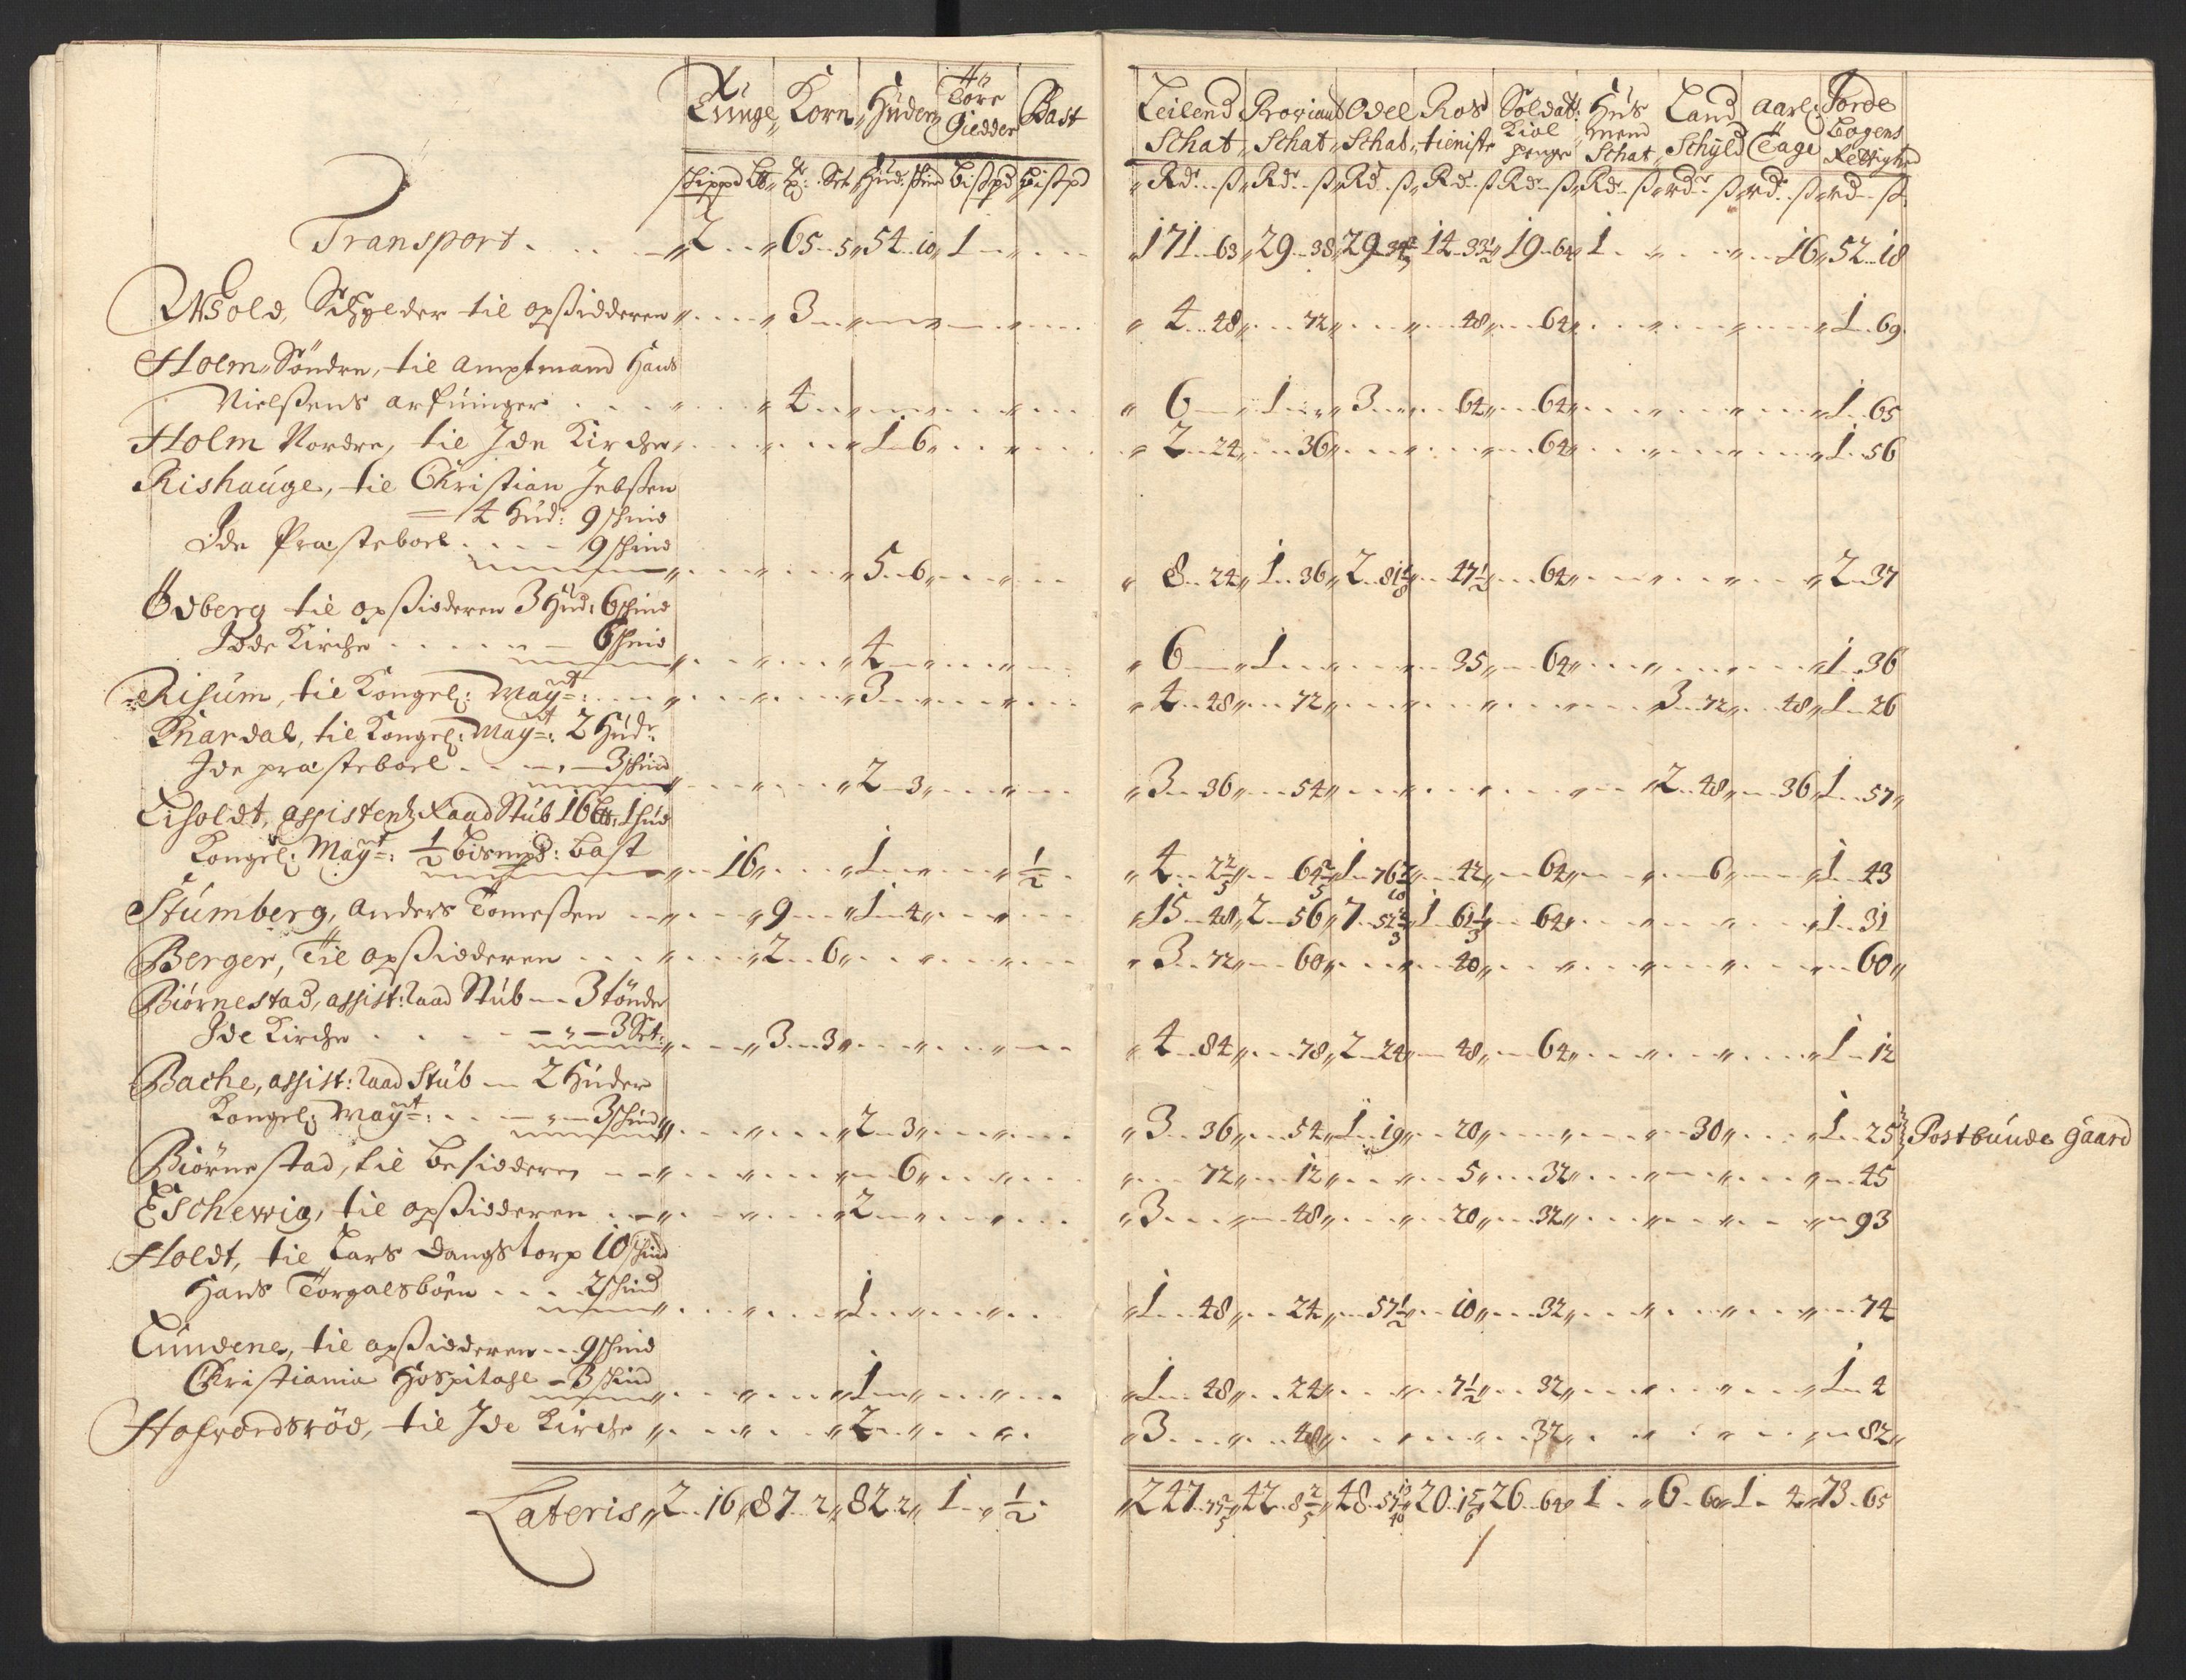 Tunge Korn Huder Töre Giedder Bast
Leilend Schat Proviant Schat Odel Schat Ros tieniste Soldat: Kiol penge Hus mend Schat Land Schyld Aarl: Tage Forde Bogens Rettighed
schippd L℔ T: Set Hud. schind Bispd Bispd
Rdr ß Rdr ß Rd ß Rd ß Rdr ß Rd ß rdr ß rdr ß rd ß
Transport 2 65 5 54 10 1 171 63 29 38 29 14 33½ 19 64 1 16 52 18
Schylder til opsidderen 3 4 48 72 48 64 1 69
Holm Söndre, til amptmand Hans
Nielsens arfuinger 4 6 1 3 64 64 1 65
Holm Nordre, til Ide Kirche 1 6 2 24 36 64 1 56
Rishauge, til Christian Jebsen
4 Hud: 9 schind
Ide Præsteboel 9 schind 5 6 8 24 1 36 2 47½ 64 2 37
Ödberg til opsidderen 3 Hud: 6 schind
Idde Kirche 6 schind 4 6 1 35 64 1 36
Risum, til Kongel: Mayt: 3 4 48 72 3 72 48 1 26
Knardal, til Kongel: Mayt: 2 Hudr
Ide præsteboel 3 schind 2 3 3 36 54 2 48 36 1 57
Lisoldt, assistentz Raad Stub 16 L℔: 1 hud
Kongel: Mayt: ½ bismpd: Bast 16 1 ½ 4 72/5 64 2/5 1 76 7/10 42 64 6 1 43
Stumberg, Anders Tomesen 9 1 4 15 48 2 56 7 52 2/3 1 61 1/3 64 1 31
Berger, Til opsidderen 2 6 3 72 60 40 60
Biörnestad, assist: raad Stub 3 tönder
Ide Kirche 3 Set: 3 3 4 84 78 2 24 48 64 1 12
Bache, assist: raad Stub 2 Huder
Kongel: Mayt: 3 schind 2 3 3 36 54 1 19 20 30 1 25 Postbunde gaard
Biörnestad, til besidderen 6 72 12 5 32 45
Eschewig, til opsidderen 2 3 48 20 32 93
Holdt, til Lars Dangstorp 10 schind
Hans Torgalsböen 2 schind 1 1 48 24 57½ 10 32 74
Lundene, til opsidderen 9 schind
Christiania Hospitahl 3 schind 1 1 48 24 7½ 32 1 2
Hafvordsröd, til Ide Kirche 2 3 48 32 82
Lateris 2 16 87 2 82 2 1 ½ 247 42 8 2/5 48 20 15/6 26 64 1 6 60 1 4 73 65